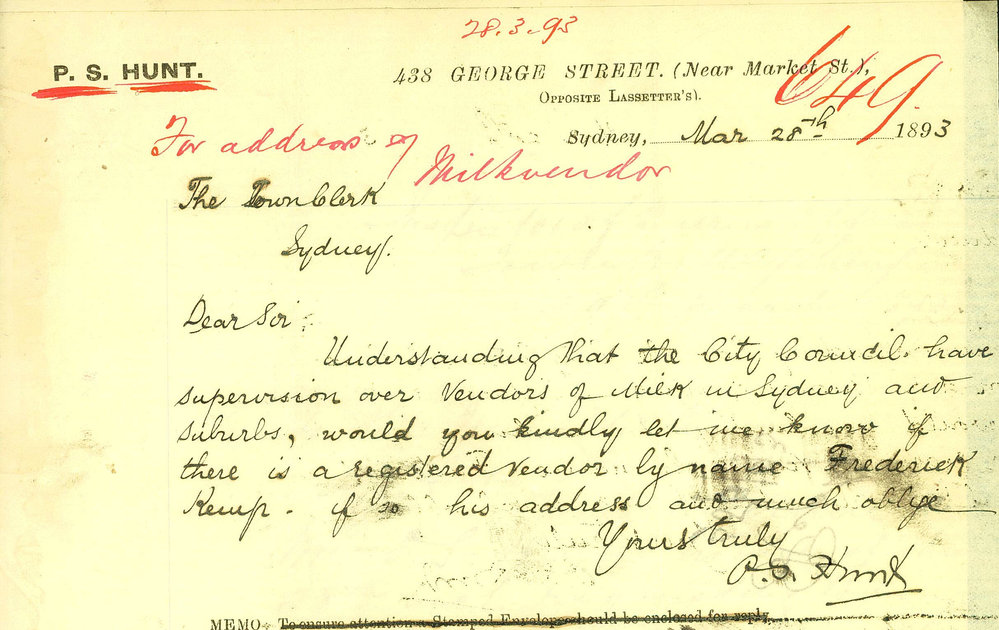 28.3.93
P. S. HUNT.
438 GEORGE STREET. (Near Market St.),
OPPOSITE LASSETTER'S).
649
Sydney, Mar 28th 1893
For address of Milkvendor
The Town Clerk
Sydney.
Dear Sir
Understanding that the City Council have
supervision over Vendors of Milk in Sydney and
suburbs, would you kindly let me know if
there is a registered Vendor by name Frederick
Kemp. if so his address and much oblige
Yours truly
P.S. Hunt
MEMO To ensure attention a Stamped Envelope should be enclosed for reply